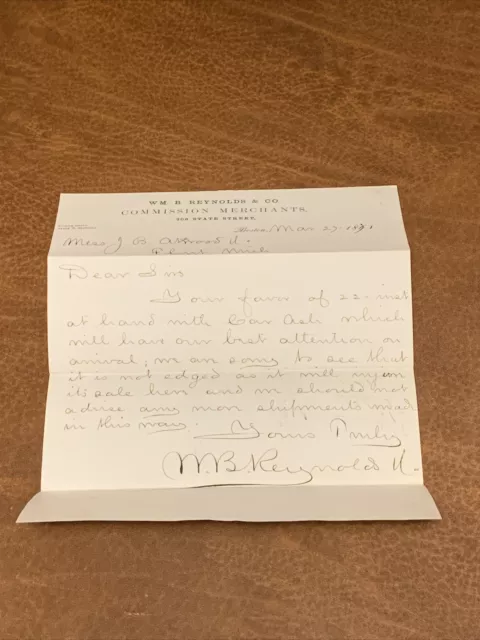 WM. B REYNOLDS & CO
COMMISSION MERCHANTS,
STATE STREET,
Mar 27 1871
Mess J B Atwood &
Flint Mich
Dear Sirs
Your favor of 22 inst
at hand with Car Ash which
will have our best attention on
arrival, we are sorry to see that
it is not edged as it will injure
its sale here and we should not
advise any more shipments made
in this way. Yours Truly
W.B. Reynolds &.